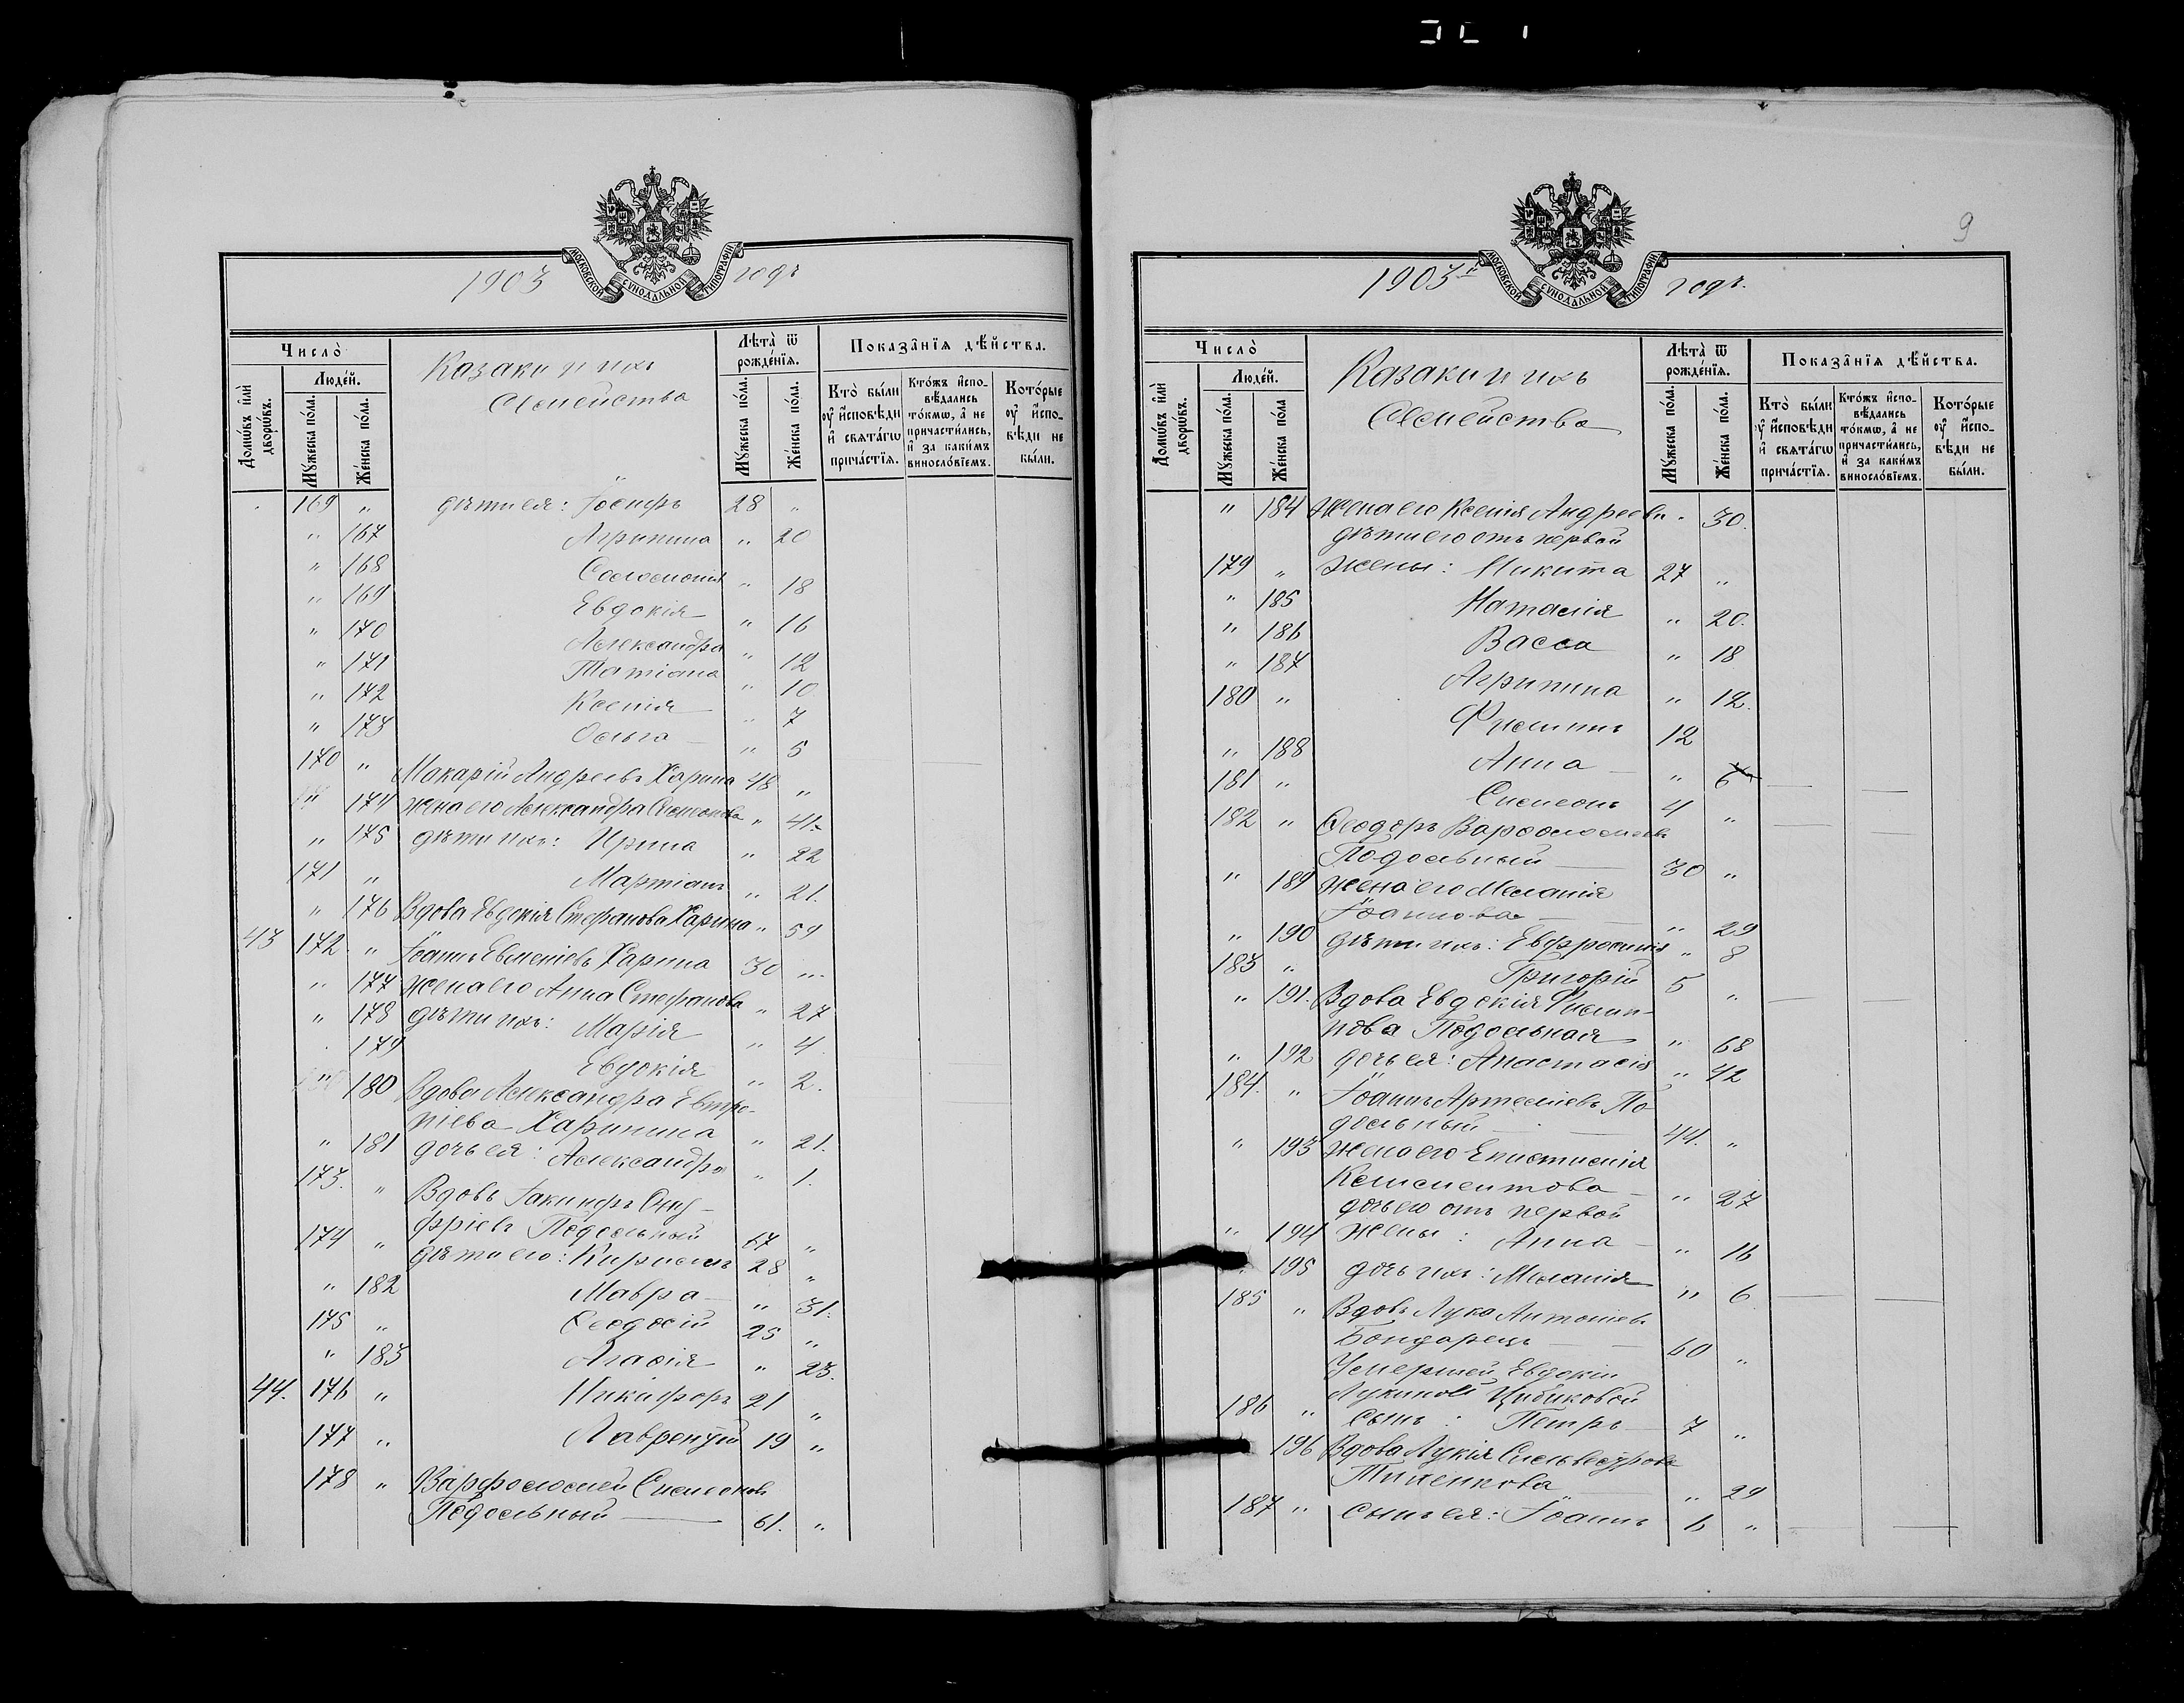 1903 годъ
МОСКОВСКОЙ СѴНОДАЛЬНОЙ ТИПОГРАФІИ
Число̀
Домѡ́въ и҆лѝ дворѡ́въ.
Люде́й.
Мꙋ́жеска по́ла.
Же́нска по́ла.
Казаки и ихъ
Семейства
Лѣта̀ ѿ рожде́нїѧ.
Мꙋ́жеска по́ла.
Же́нска по́ла.
Показа̑нїѧ дѣ́йства.
Кто̀ бы́ли ᲂу҆ и҆сповѣ́ди и҆ свѧта́гѡ прича́стїѧ.
Кто́жъ и҆спо-вѣ́дались то́кмѡ, а҆ не причасти́лись, и҆ за каки́мъ винослов́їемъ.
Кото́рые ᲂу҆ и҆спо-вѣ́ди не бы́ли.
169 " дѣти ея: Іосифъ 28 "
" 167 Агрипина " 20
" 168 Соломонія " 18
" 169 Евдокія " 16
" 170 Александра " 12
" 171 Татіана " 10
" 172 Ксенія " 7
" 173 Ольга " 5
170 " Макарій Андреевъ Харина 48 "
" 174 жена его Александра Симеонова " 41
" 175 дѣти ихъ: Ирина " 22
171 " Мартіанъ " 21.
" 176 Вдова Евдокія Стефанова Харина " 59
43 172 " Іоаннъ Евменіевъ Харина 30 "
" 177 жена его Анна Стефанова " 27
" 178 дѣти ихъ: Марія " 4
179 Евдокія " 2.
" 180 Вдова Александра Евтро-
піева Харинина " 21.
" 181 дочь ея: Александра " 1.
173. " Вдовъ Іакинфъ Ону-
фріевъ Подольный 67 "
174 " дѣти его: Кириллъ 28 "
" 182 Мавра " 31.
175 " Ѳеодосій 25 "
" 183 Агафія " 23.
44. 176 " Никифоръ 21 "
177 " Лаврентій 19 "
178 " Варфоломей Симеоновъ
Подольный 61. "
9
1903й годъ.
МОСКОВСКОЙ СѴНОДАЛЬНОЙ ТИПОГРАФІИ
Число̀
Домѡ́въ и҆лѝ дворѡ́въ.
Люде́й.
Мꙋ́жеска по́ла.
Же́нска по́ла
Казаки и ихъ
Семейства
Лѣта̀ ѿ рожде́нїѧ.
Мꙋ́жеска по́ла.
Же́нска по́ла.
Показа̑нїѧ дѣ́йства.
Кто̀ бы́ли ᲂу҆ и҆сповѣ́ди и҆ свѧта́гѡ прича́стїѧ.
Кто́жъ и҆спо-вѣ́дались то́кмѡ, а҆ не причасти́лись, и҆ за каки́мъ винослов́їемъ.
Кото́рые ᲂу҆ и҆спо-вѣ́ди не бы́ли.
" 184 Жена его Ксенія Андреева " 30.
дѣти его отъ первой
179 " жены: Никита 27 "
" 185 Наталія " 20.
" 186 Васса " 18
" 187 Агрипина " 12.
180 " Филиппъ 12
" 188 Анна " 6
181 " Симеонъ 4 "
182 " Ѳеодоръ Варфоломеевъ
Подольный 30 "
" 189 жена его Меланія
Іоаннова " 29
" 190 дѣти ихъ: Евфросинія " 8
183 " Григорій 5 "
" 191. Вдова Евдокія Филип-
пова Подольная " 68
" 192 дочь ея: Анастасія " 42
184. " Іоаннъ Артеміевъ По-
дольный 44. "
" 193 жена его Епистимія
Климентова " 27
дочь его отъ первой
" 194 жены: Анна " 16
" 195 дочь ихъ: Меланія " 6
185 " Вдовъ Лука Антоніевъ
Бондарець 60 "
Умершей Евдокіи
Лукиной Цибиковой
186 " сынъ: Петръ 7 "
196 Вдова Лукія Сильвестрова
Тиленкова " 29
187 " сынъ ея: Іоаннъ 6 "